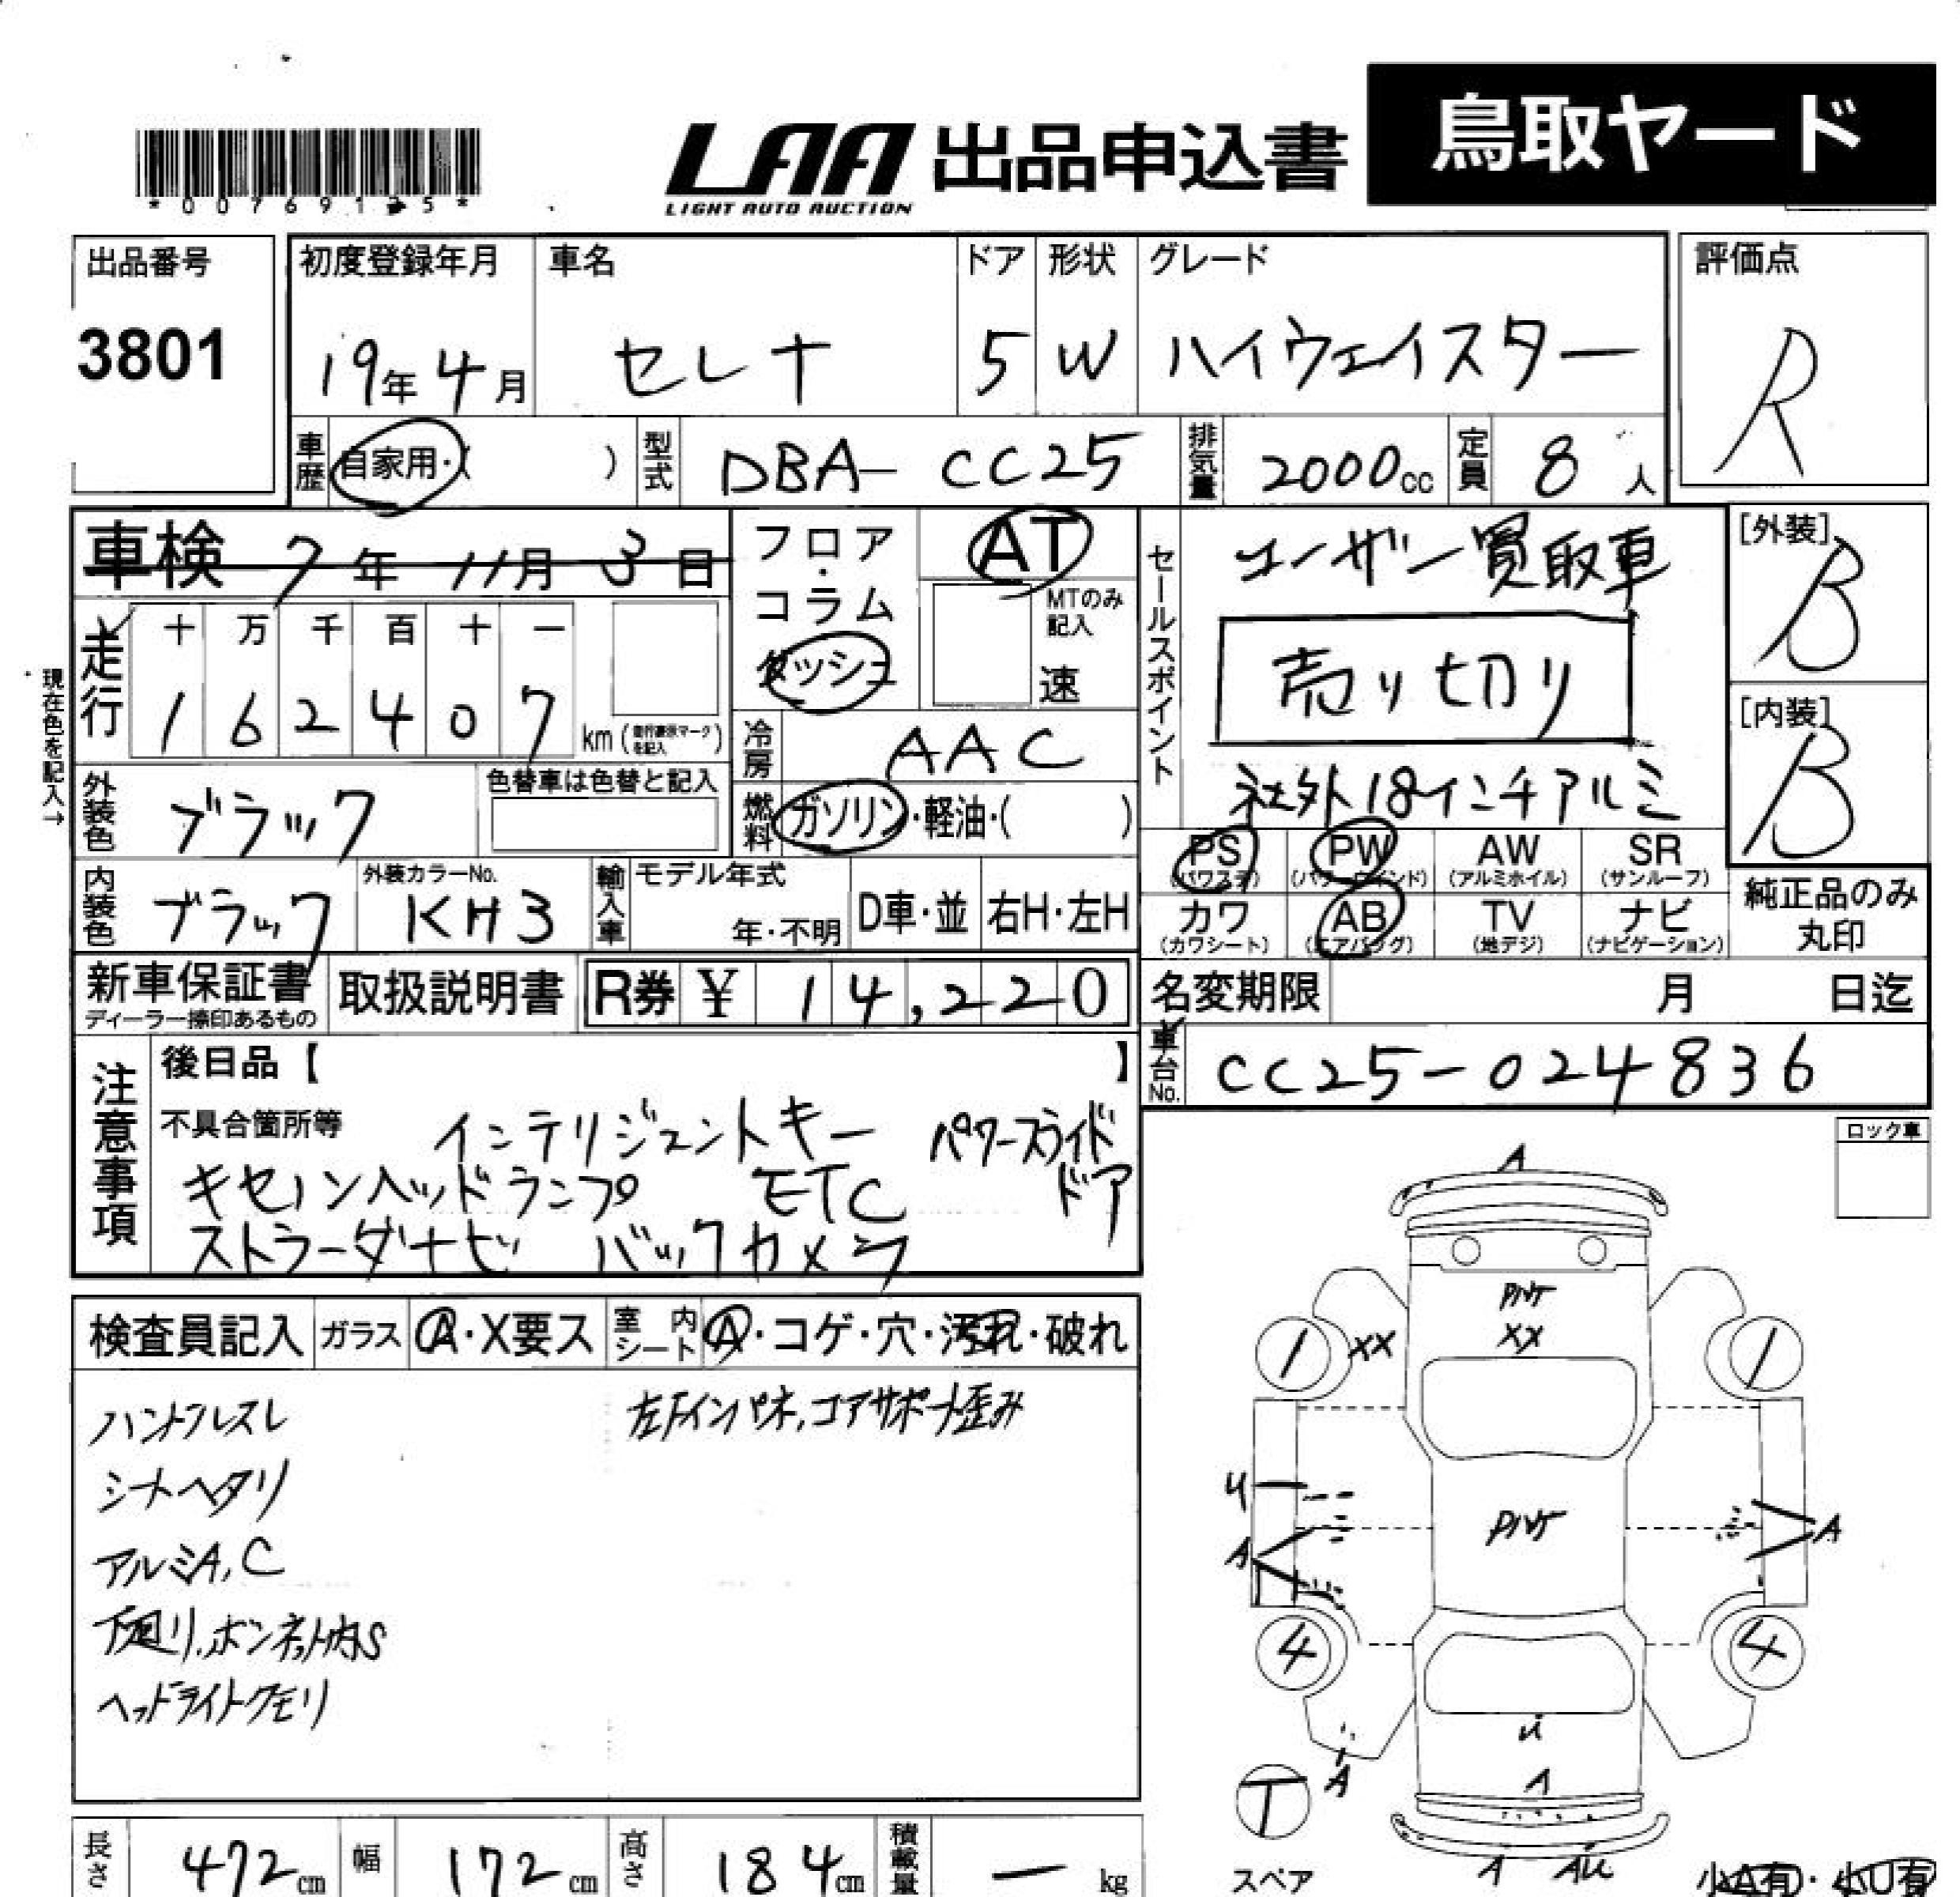 *00769125*
LAA 出品申込書 鳥取ヤード
LIGHT AUTO AUCTION
出品番号 初度登録年月 車名 ドア 形状 グレード 評価点
3801 19年4月 セレナ 5 W ハイウェイスター R
車歴 自家用・( ) 型式 DBA-CC25 排気量 2000cc 定員 8人
車検 7年11月3日 フロア・コラム ダッシュ AT
MTのみ記入 速
セールスポイント ユーザー買取車
売り切り
社外18インチアルミ
[外装] B
[内装] B
現在色を記入→
走行 十 万 千 百 十 一
1 6 2 4 0 7 km (走行表示マークを記入)
冷房 AAC
外装色 ブラック 色替車は色替と記入
燃料 ガソリン・軽油・( )
PS (パワステ) PW (パワーウインド) AW (アルミホイル) SR (サンルーフ)
カワ (カワシート) AB (エアバッグ) TV (地デジ) ナビ (ナビゲーション)
純正品のみ丸印
内装色 ブラック 外装カラーNo. KH3 輸入車 モデル年式 年・不明 D車・並 右H・左H
新車保証書 ディーラー捺印あるもの 取扱説明書 R券 ¥ 14,220
名変期限 月 日迄
車台No. CC25-024836
注意事項 後日品【 】
不具合箇所等 インテリジェントキー パワースライドドア
キセノンヘッドランプ ETC
ストラーダナビ バックカメラ
ロック車
検査員記入 ガラス A・X要ス 室内シート A・コゲ・穴・汚れ・破れ
ハンドルスレ 左Fインパネ,コアサポート歪み
シートヘタリ
アルミA,C
下廻り,ボンネット内S
ヘッドライトクモリ
A
PNT
XX
1 XX 1
U
A PNT A
4 4
A
A
T
スペア
A AU
小A有・小U有
長さ 472cm 幅 172cm 高さ 184cm 積載量 ー kg